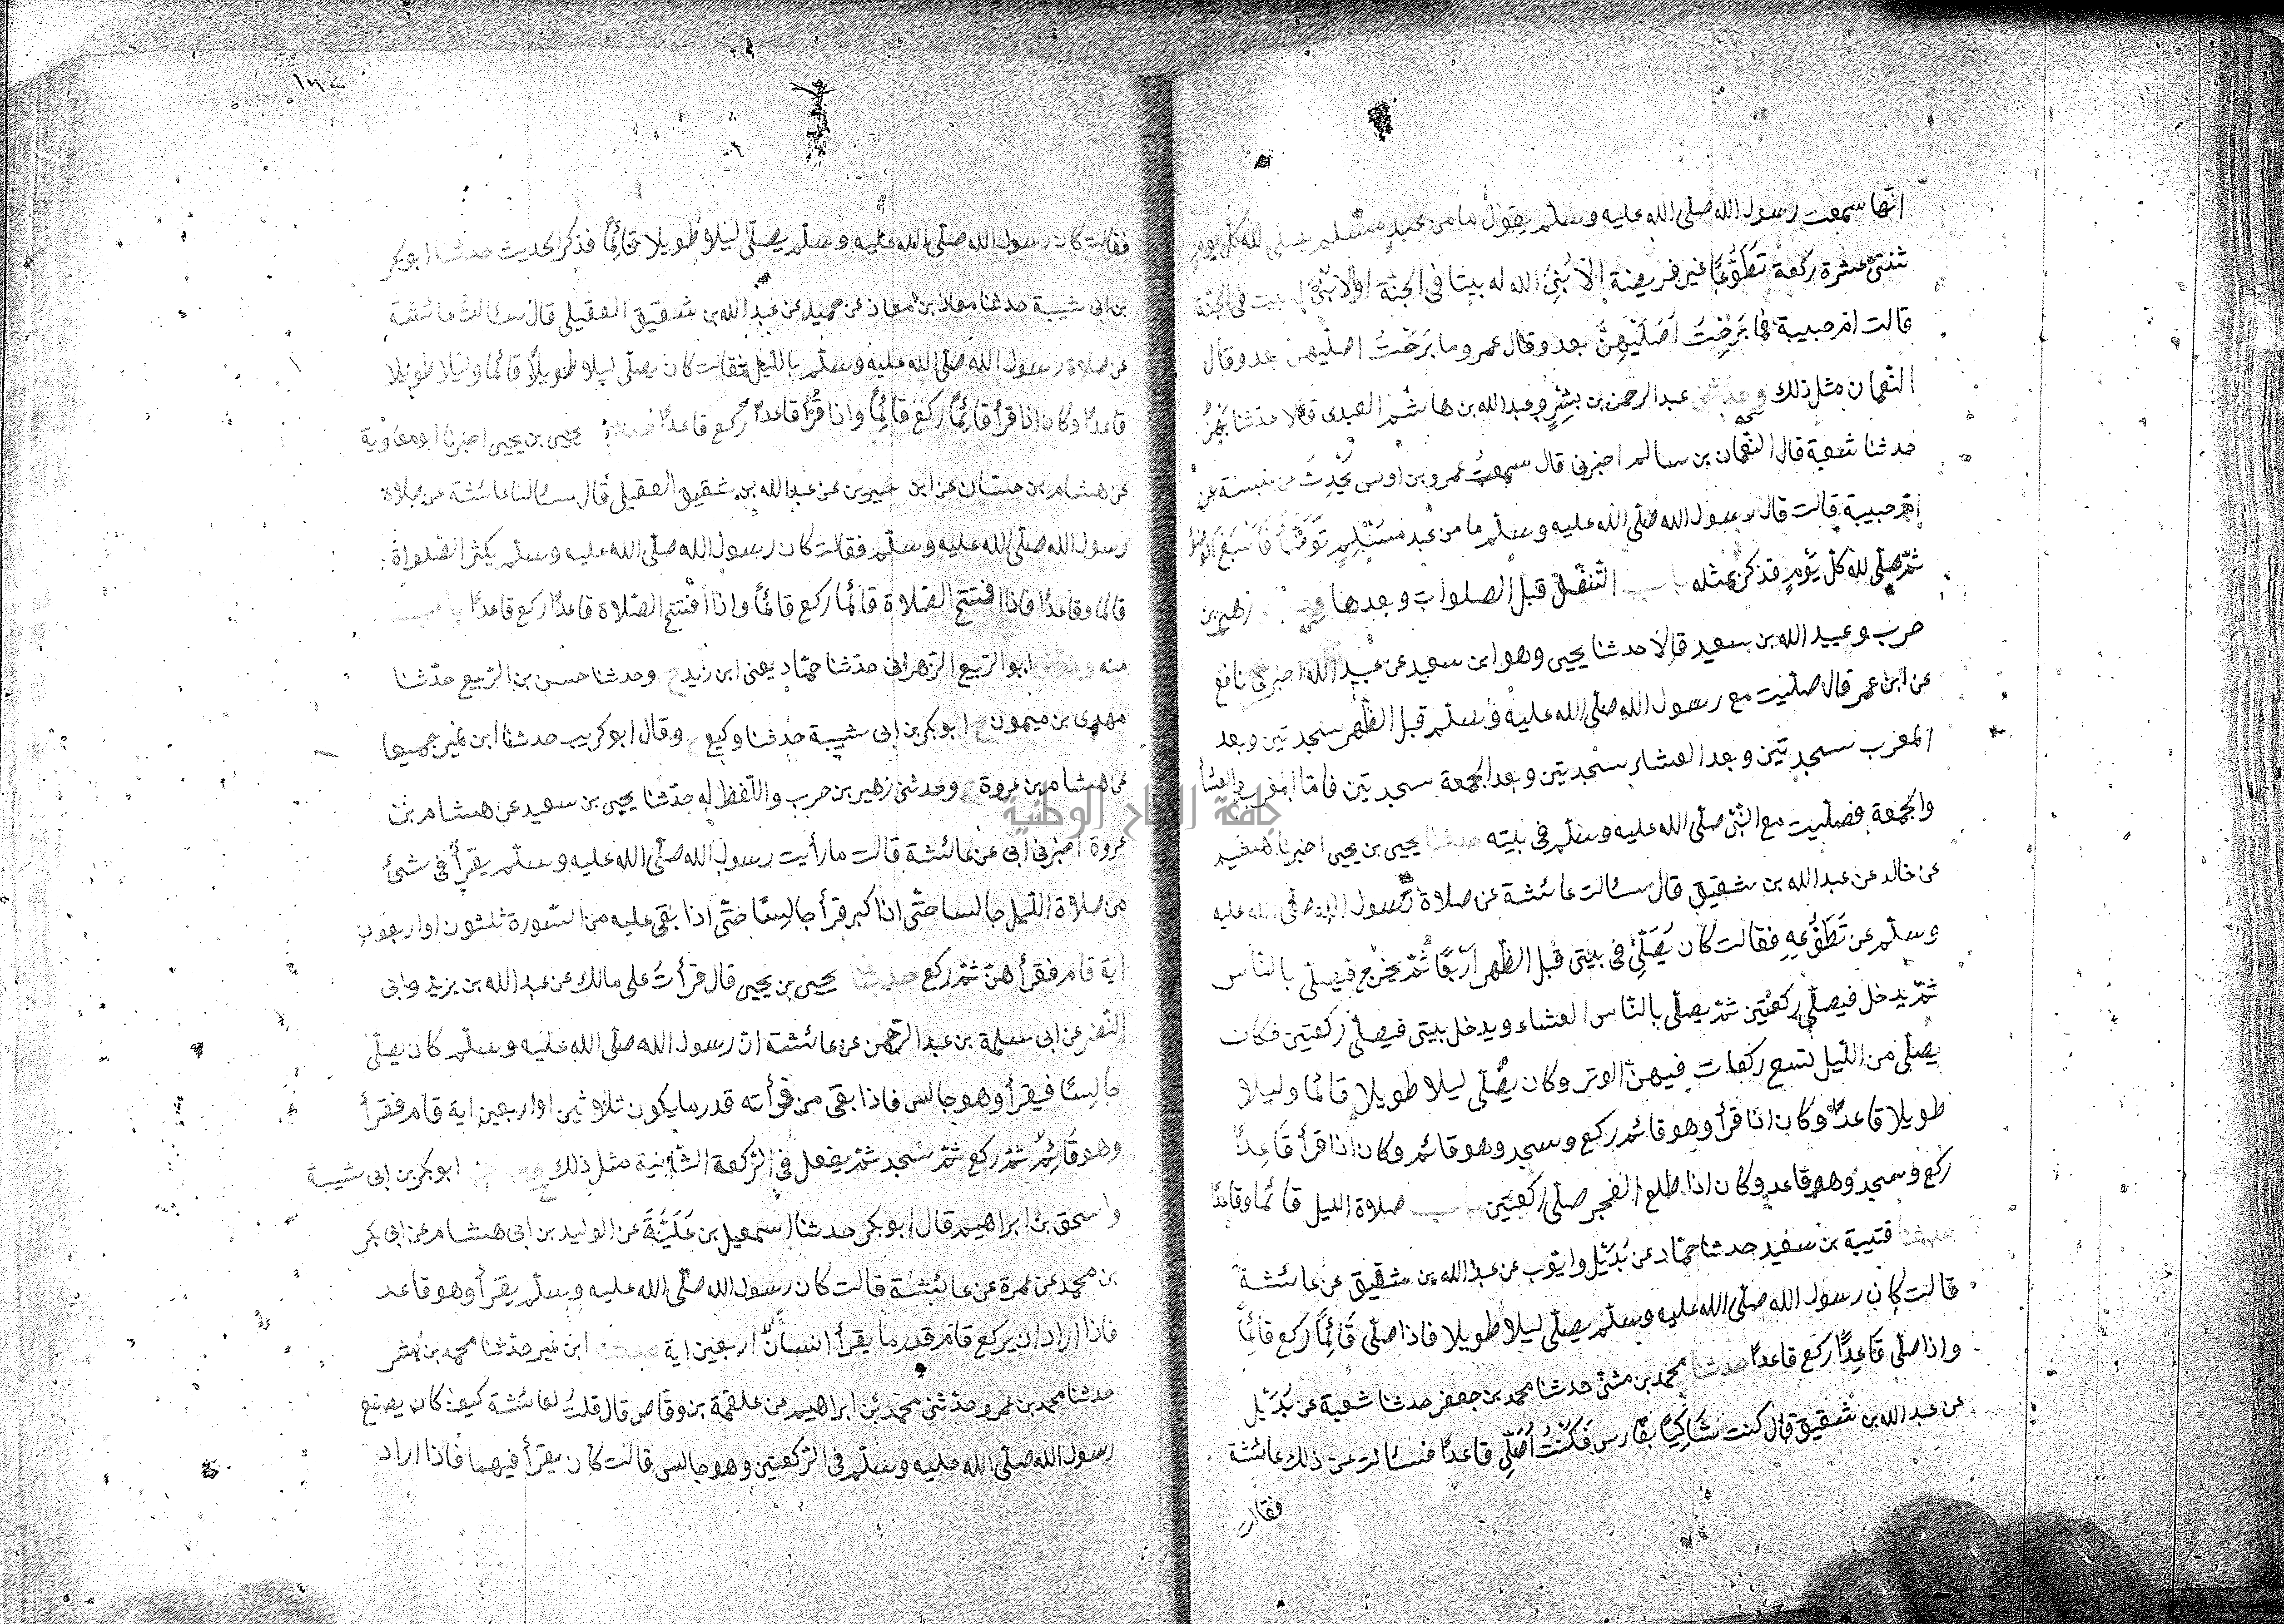 انها سمعت رسول الله صلى الله عليه وسلم يقول ما من عبد مسلم يصلى لله كل يوم
ثنتى عشرة ركعة تطوعا غير فريضة الا بنى الله له بيتا فى الجنة او الا بنى له بيت فى الجنة
قالت ام حبيبة فما برحت اصليهن بعد وقال عمرو ما برحت اصليهن بعد وقال
النعمان مثل ذلك وحدثنى عبد الرحمن بن بشر وعبد الله بن هاشم العبدى قالا حدثنا بهز
حدثنا شعبة قال النعمان بن سالم اخبرنى قال سمعت عمرو بن اوس يحدث عن عنبسة عن
ام حبيبة قالت قال رسول الله صلى الله عليه وسلم ما من عبد مسلم توضأ فاسبغ الوضوء
ثم صلى لله كل يوم فذكر بمثله باب التنفل قبل الصلوات وبعدها زهير بن
حرب وعبيد الله بن سعيد قالا حدثنا يحيى وهو ابن سعيد عن عبيد الله اخبرنى نافع
عن ابن عمر قال صليت مع رسول الله صلى الله عليه وسلم قبل الظهر سجدتين وبعد
المغرب سجدتين وبعد العشاء سجدتين وبعد الجمعة سجدتين فاما المغرب والعشاء
والجمعة فصليت مع النبى صلى الله عليه وسلم فى بيته حدثنا يحيى بن يحيى اخبرنا هشيم
عن خالد عن عبد الله بن شقيق قال سالت عائشة عن صلاة رسول الله صلى الله عليه
وسلم عن تطوعه فقالت كان يصلى فى بيتى قبل الظهر اربعا ثم يخرج فيصلى بالناس
ثم يدخل فيصلى ركعتين ثم يصلى بالناس العشاء ويدخل بيتى فيصلى ركعتين فكان
يصلى من الليل تسع ركعات فيهن الوتر وكان يصلى ليلا طويلا قائما وليلا
طويلا قاعدا وكان اذا قرأ وهو قائم ركع وسجد وهو قائم وكان اذا قرأ قاعدا
ركع وسجد وهو قاعد وكان اذا طلع الفجر صلى ركعتين باب صلاة الليل قائما وقاعدا
حدثنا قتيبة بن سعيد حدثنا حماد عن بديل وايوب عن عبد الله بن شقيق عن عائشة
قالت كان رسول الله صلى الله عليه وسلم يصلى ليلا طويلا فاذا صلى قائما ركع قائما
واذا صلى قاعدا ركع قاعدا حدثنا محمد بن مثنى حدثنا محمد بن جعفر حدثنا شعبة عن بديل
عن عبد الله بن شقيق قال كنت شاكيا بفارس فكنت اصلى قاعدا فسالت عن ذلك عائشة
فقالت
١٨٤
فقالت كان رسول الله صلى الله عليه وسلم يصلى ليلا طويلا قائما فذكر الحديث حدثنا ابو بكر
بن ابى شيبة حدثنا معاذ بن معاذ عن حميد عن عبد الله بن شقيق العقيلى قال سالت عائشة
عن صلاة رسول الله صلى الله عليه وسلم بالليل فقالت كان يصلى ليلا طويلا قائما وليلا طويلا
قاعدا وكان اذا قرأ قائما ركع قائما واذا قرأ قاعدا ركع قاعدا يحيى بن يحيى اخبرنا ابو معاوية
عن هشام بن حسان عن ابن سيرين عن عبد الله بن شقيق العقيلى قال سالنا عائشة عن صلاة
رسول الله صلى الله عليه وسلم فقالت كان رسول الله صلى الله عليه وسلم يكثر الصلواة
قائما وقاعدا فاذا افتتح الصلاة قائما ركع قائما واذا افتتح الصلاة قاعدا ركع قاعدا باب
منه وحدثنى ابو الربيع الزهرانى حدثنا حماد يعنى ابن زيد ح وحدثنا حسن بن الربيع حدثنا
مهدى بن ميمون ح ابو بكر بن ابى شيبة حدثنا وكيع ح وقال ابو كريب حدثنا ابن نمير جميعا
عن هشام بن عروة ح وحدثنى زهير بن حرب واللفظ له حدثنا يحيى بن سعيد عن هشام بن
جامعة النجاح الوطنية
عروة اخبرنى ابى عن عائشة قالت ما رأيت رسول الله صلى الله عليه وسلم يقرأ فى شئ
من صلاة الليل جالسا حتى اذا كبر قرأ جالسا حتى اذا بقى عليه من السورة ثلثون او اربعون
اية قام فقرأهن ثم ركع حدثنا يحيى بن يحيى قال قرأت على مالك عن عبد الله بن يزيد وابى
النضر عن ابى سلمة بن عبد الرحمن عن عائشة ان رسول الله صلى الله عليه وسلم كان يصلى
جالسا فيقرأ وهو جالس فاذا بقى من قرأته قدر ما يكون ثلاثين او اربعين اية قام فقرأ
وهو قائم ثم ركع ثم سجد ثم يفعل فى الركعة الثانية مثل ذلك ابو بكر بن ابى شيبة
واسحق بن ابراهيم قال ابو بكر حدثنا اسمعيل بن علية عن الوليد بن ابى هشام عن ابى بكر
بن محمد عن عمرة عن عائشة قالت كان رسول الله صلى الله عليه وسلم يقرأ وهو قاعد
فاذا اراد ان يركع قام قدر ما يقرأ انسان اربعين اية حدثنا ابن نمير حدثنا محمد بن بشر
حدثنا محمد بن عمرو حدثنى محمد بن ابراهيم عن علقمة بن وقاص قال قلت لعائشة كيف كان يصنع
رسول الله صلى الله عليه وسلم فى الركعتين وهو جالس قالت كان يقرأ فيهما فاذا اراد